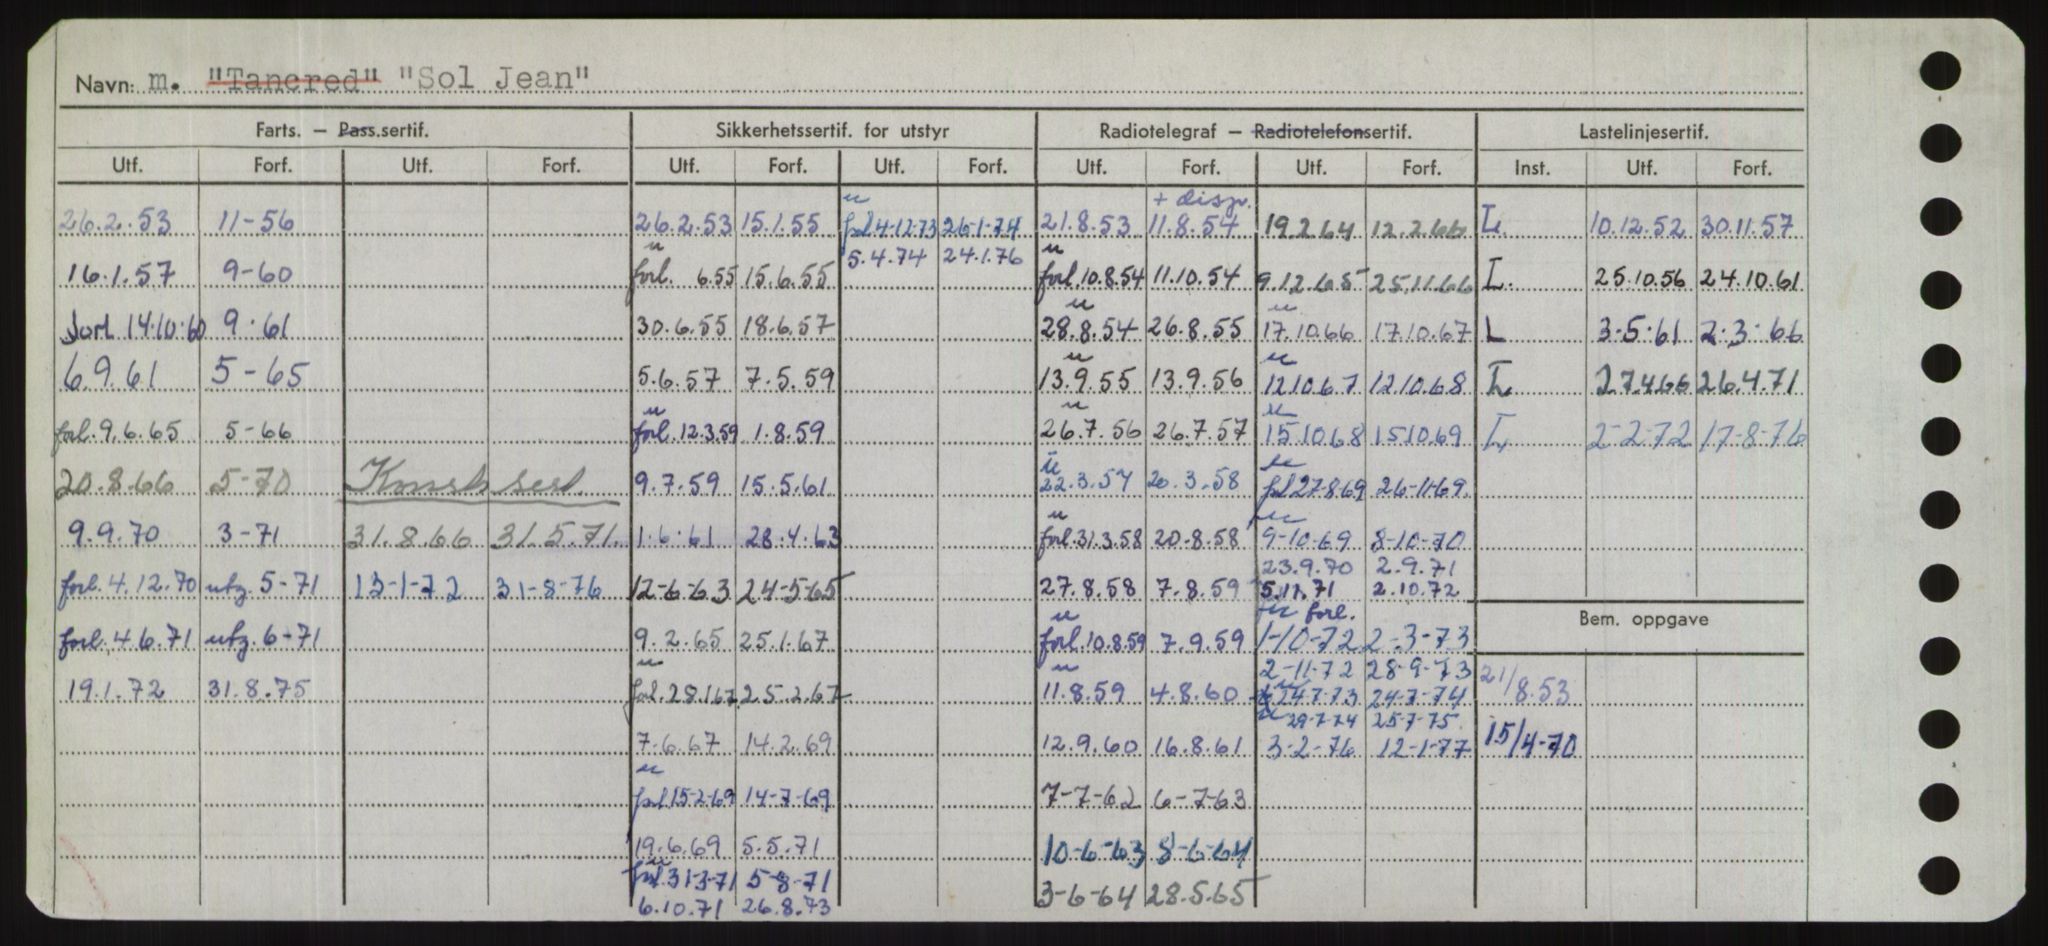 Navn: m. "Tancred" "Sol Jean"
Farts. — Pass.sertif. Sikkerhetssertif. for utstyr Radiotelegraf — Radiotelefonsertif. Lastelinjesertif.
Utf. Forf. Utf. Forf. Utf. Forf. Utf. Forf. Utf. Forf. Utf. Forf. Inst. Utf. Forf.
+ disp.
26.2.53 11-56 26.2.53 15.1.55 forl 4-12-73 26-1-74 21.8.53 11.8.54 19.2.64 12.2.66 L. 10.12.52 30.11.57
5.4.74 24.1.76
16.1.57 9-60 forl. 6.55 15.6.55 forl. 10.8.54 11.10.54 9.12.65 25.11.66 L. 25.10.56 24.10.61
forl 14.10.60 9.61 30.6.55 18.6.57 28.8.54 26.8.55 17.10.66 17.10.67 L 3.5.61 2.3.66
6.9.61 5-65 5.6.57 7.5.59 13.9.55 13.9.56 12.10.67 12.10.68 L 27.4.66 26.4.71
forl. 9.6.65 5-66 forl. 12.3.59 1.8.59 26.7.56 26.7.57 15.10.68 15.10.69 L 2-2-72 17-8-76
20.8.66 5-70 Konstr. sert. 9.7.59 15.5.61 22.3.57 20.3.58 forl 27.8.69 26-11-69.
9.9.70 3-71 31.8.66 31.5.71. 1.6.61 28.4.63 forl. 31.3.58 20.8.58 9-10-69 8-10-70
23.9.70 2.9.71
forl. 4.12.70 utg. 5-71 13-1-72 31-8-76 12-6-63 24-5-65 27.8.58 7.8.59 5.11.71 2.10.72
forl.
Bem. oppgave
forl. 4.6.71 utg. 6-71 9.2.65 25.1.67 forl. 10.8.59 7.9.59 1-10-72 2-3-73
2-11-72 28-9-73
19.1.72 31.8.75 forl. 28.1.67 25.2.67 11.8.59 4.8.60 24-7-73 24-7-74 21/8.53
29-7-74 25-7-75.
7.6.67 14.2.69 12.9.60 16.8.61 3-2-76 12-1-77 15/4-70
forl 15-2-69 14-7-69 7-7-62 6-7-63
19.6.69 5.5.71 10-6-63 8-6-64
forl. 31-3-71 5-8-71
3-6-64 28.5.65
6.10.71 26.8.73